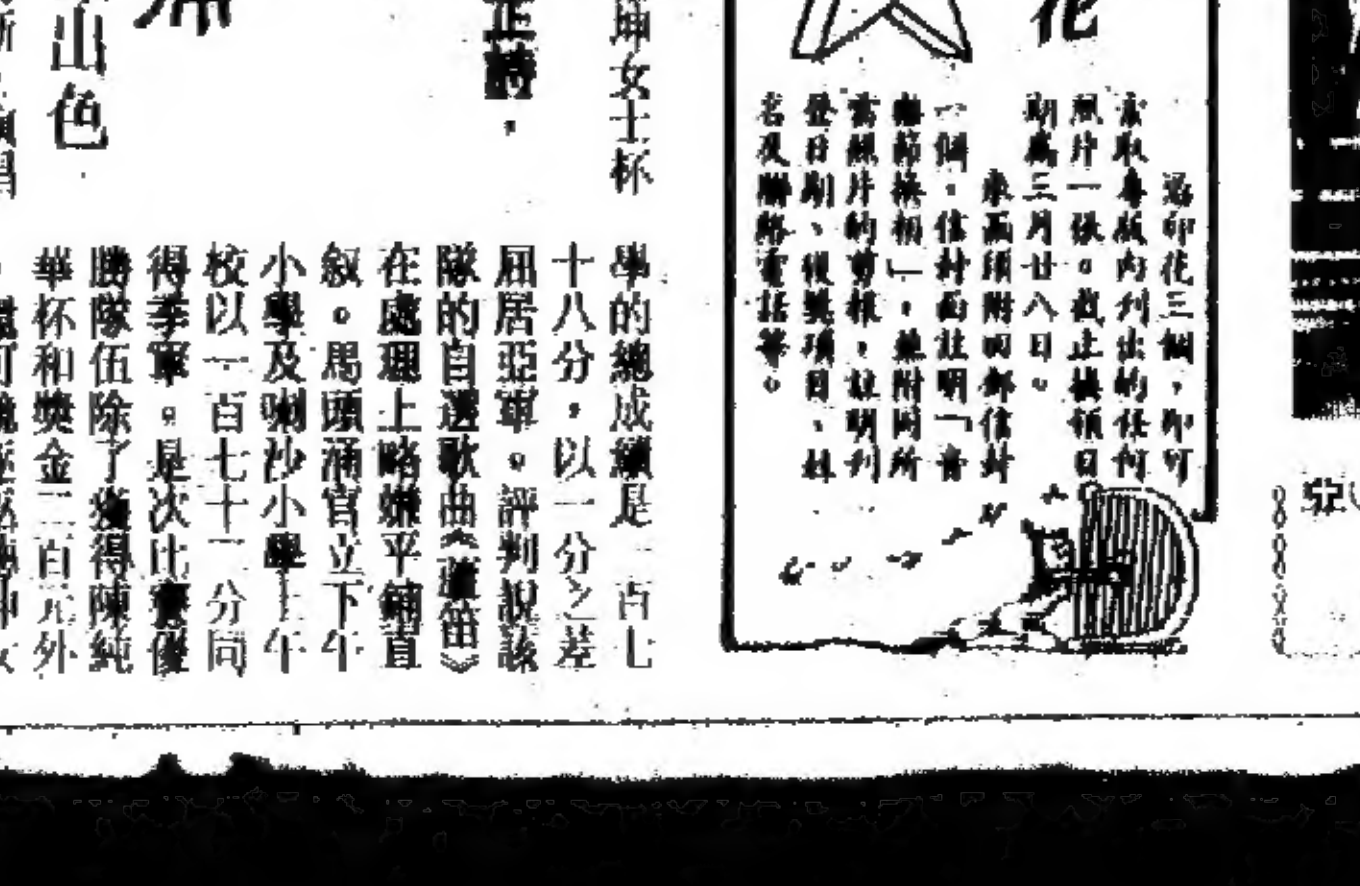 花
過印花三個，即可
索取專版內刊出的任何
照片一張。截止換領日
期為三月廿八日。
來函須附回郵信封
一個，信封面註明「音
樂節換相」，並附同所
需照片的剪樣，註明刊
登日期、得獎項目、姓
名及聯絡電話等。
坤女士杯
正時，
山色
學的總成績是一百七
十八分，以一分之差
屈居亞軍。評判說該
隊的自選歌曲《蘆笛》
在處理上略嫌平鋪直
敍。馬頭涌官立下午
小學及喇沙小學上午
校以一百七十一分同
得季軍。是次比賽優
勝隊伍除了獲得陳純
華杯和獎金二百元外
亞